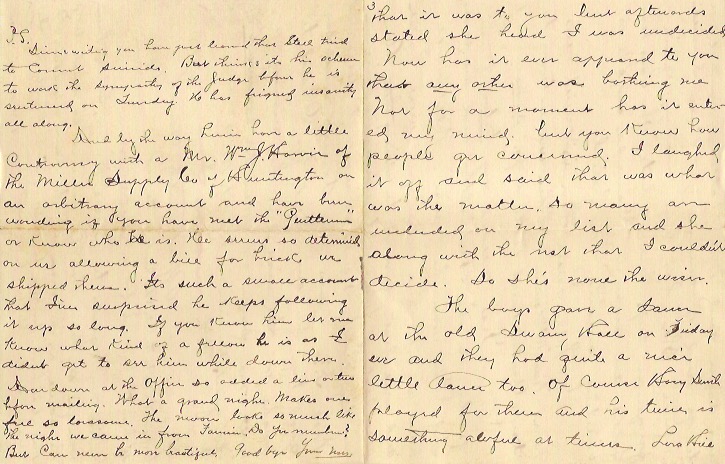 P.S.
Since writing you have just learned that Steel tried
to Commit Suicide. Best thinks its his scheme
to work the sympathy of the Judge before he is
sentenced on Sunday. He has feigned insanity
all along.
And by the way havin have a little
Controversy with a Mr. Wm J. Harvie of
the Miller Supply Co of Huntington on
an arbitrary account and have been
wondering if you have met the "Gentleman"
or know who he is. He seems so determined
on us allowing a bill for brick we
shipped them. Its such a small account
that I'm surprised he keeps following
it up so long. If you know him let me
know what kind of a fellow he is as I
didnt get to see him while down there.
Am down at the Office so added a line or two
before mailing. What a grand night. Makes one
feel so lonesome. The moon looks so much like
the night we came in from Do You remember?
But Can never be more beautiful. Good bye Your
3
that it was to you but afterwards
stated she heard I was undecided
Now has it ever appeared to you
that any other was bothering me
Not for a moment has it enter-
ed my mind, but you know how
people are concerned. I laughed
it off and said that was what
was the matter. So many are
included on my list and she
along with the rest that I couldn't
decide. So she's none the wiser.
The boys gave a Dance
at the old Swain Hall on Friday
eve and they had quite a nice
little dance too. Of Course Harry
played for them and his time is
something awful at times.